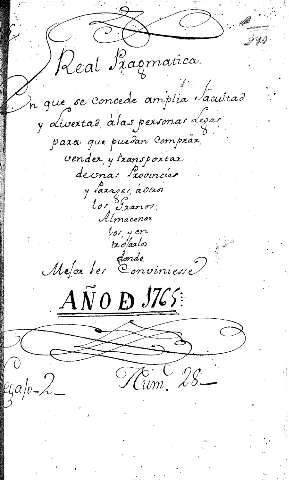 Real Pragmatica
En que se concede amplia facultad
y livertad, álas personas Legas
para que puedan comprar,
vender y transportar
de unas Provincias
y parages, á otros
los Granos;
Almacenar
los, y en
trojarlos
donde
Mejor les Conviniesse
AÑO D 1765
Legajo 2
Num. 28